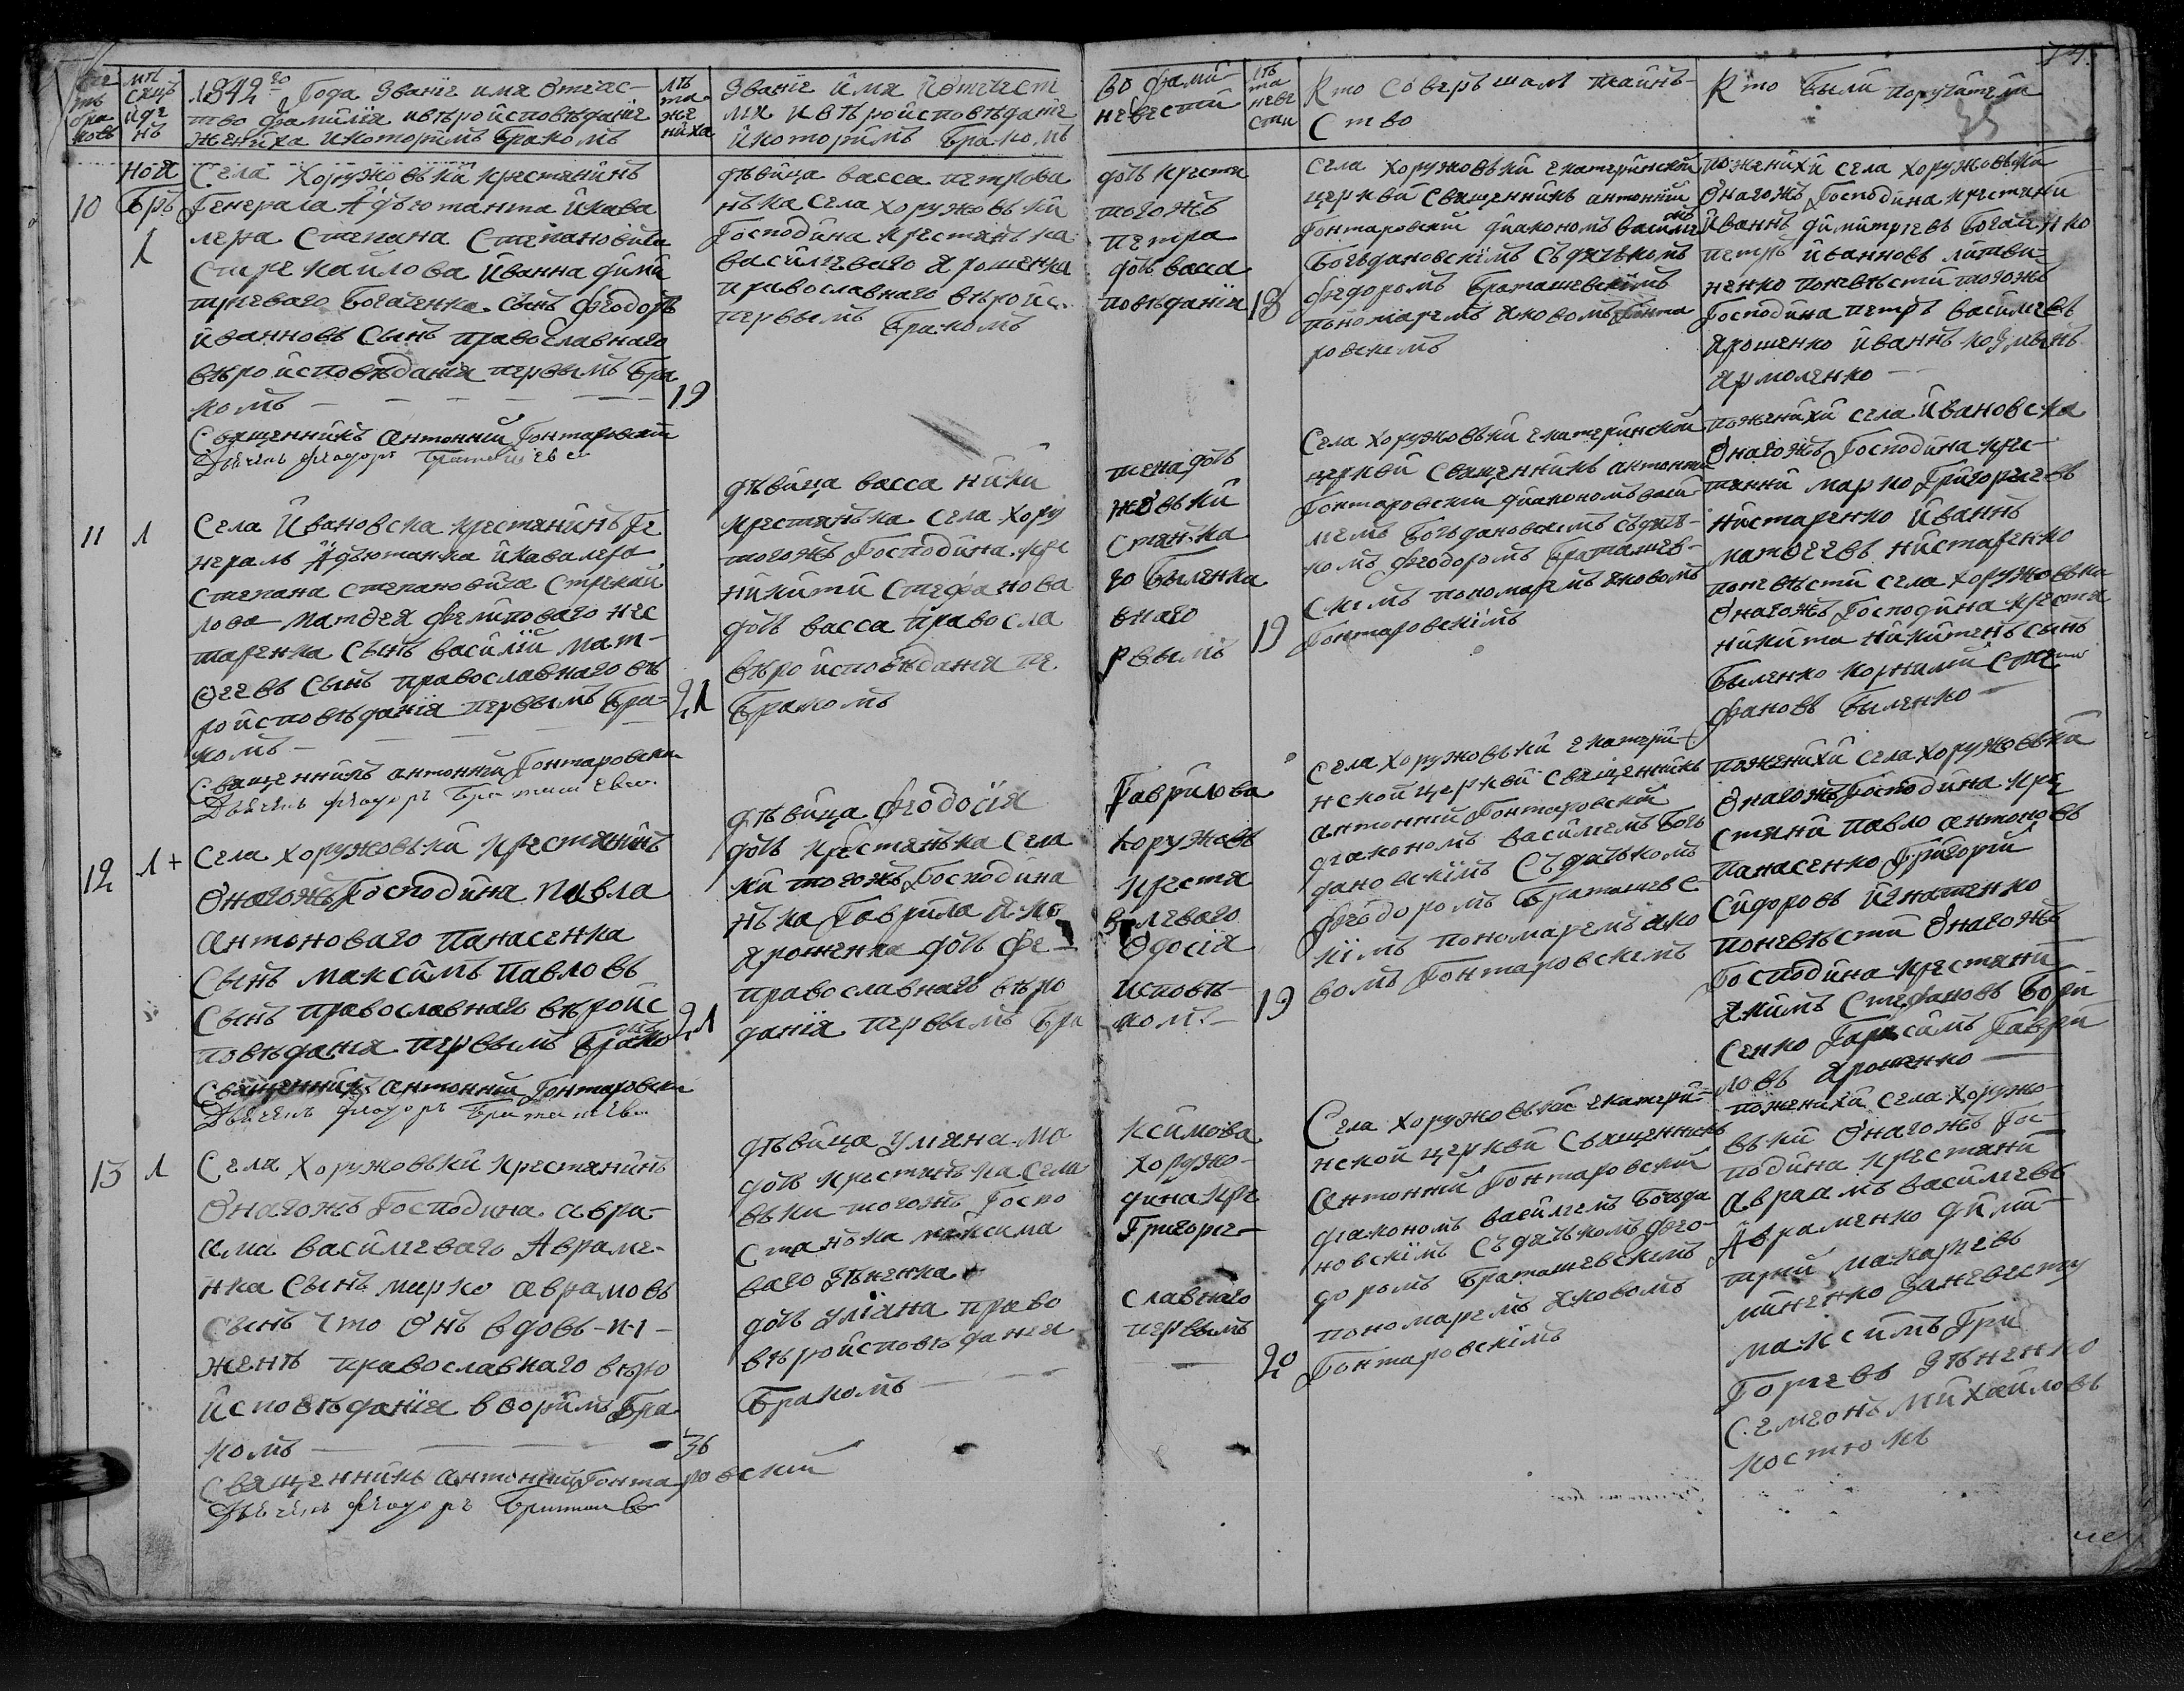 74.
35
сче
тъ
бра
ковъ
мѣ
сяцъ
и де
нь
1842го Года званіе имя Отчес-
тво фамилія и вѣройсповѣданіе
жениха и которимъ бракомъ
лѣ
та
же
ниха
званіе имя и отчест
лія и вѣройсповѣданіе
и которимъ бракомъ
во фами-
невести
лѣ
та
неве
сти
Кто совершалъ таинъ-
ство
Кто были поручители
10
ноя
брь
1
Села Хоружовъки крестянинъ
Генерала Адъютанта и кава
лера Степана Степановича
Стрекайлова Иванна дими
тріеваго Богаченка сынъ Феодоръ
иванновъ сынъ православнаго
вѣройсповѣданія первымъ бра
комъ
19
Священникъ антоній Гонтаровскій
Дьячекъ феодоръ Браташевск
дѣвица васса петрова
нька села хоружовъки
Господина крестянька
василіеваго Ярошенка
православнаго вѣройс
первымъ бракомъ
дочь крестя
тогожъ
петра
дочь васса
повѣданія
18
села хоружовъки екатеринской
церкви священникъ антоній
Гонтаровскій діакономъ василіемъ
Богъдановскимъ съ дячькомъ
федоромъ Браташевскімъ
пономаремъ яковомъ Гонта
ровскимъ
по жениху села хоружовъки
Онагожъ Господина крестяни
Иваннъ димитріевъ Богаченко
петръ иванновъ литви
ненко по невѣсти тогожъ
Господина петръ василіевъ
Ярошенко иваннъ
Ярмоленко
11
1
Села Ивановска крестянинъ Ге
нералъ Адъютанка и кавалера
степана степановича Стрекай
лова матѳея филиповаго нес
таренка сынъ василій мат-
ѳеевъ сынъ православнаго вѣ
ройсповѣданія первымъ бра-
комъ
21
Священникъ антоній Гонтаровски
Дьячекъ феодоръ Браташевск
дѣвица васса ники
крестянька села хору
тогожъ Господина кре
никити Стефанова
дочь васса правосла
вѣройсповѣданія пе
бракомъ
тена дочь
жовъки
стянка
го быленка
внаго
рвымъ
19
Села хоружовъки екатеринской
церкви священникъ антоній
Гонтаровски діакономъ васи
лемъ Богъдановскимъ съ дячь-
комъ феодоромъ Браташев-
скимъ пономаремъ яковомъ
Гонтаровскімъ
по жениху села Ивановска
Онагожъ Господина кре-
тяни марко Григоріевъ
нистаренко иваннъ
матѳеевъ нистаренко
по невѣсти села хоружовъки
Онагожъ Господина крестя
никита никитенъ сынъ
быленко корнилій сте
фановъ быленко
12
1+
Села Хоружовъки крестянинъ
Онагожъ Господина павла
антоноваго Панасенка
Сынъ максимъ павловъ
Сынъ православнаго вѣройс
повѣданія первымъ бракомъ
21
Священникъ антоній Гонтаровски
Дьячекъ феодоръ Браташевск
дѣвица Феодосія
дочь крестянька села
ки тогожъ Господина
нька Гаврила яко
Ярошенка дочь фе
православнаго вѣро
данія первымъ бра
Гаврилова
хоружовъ
крестя
влеваго
ѳдосія
исповѣ-
комъ
19
Села хоружовъки екатери-
нской церкви священникъ
антоній Гонтаровскій
діакономъ василіемъ Богъ
дановскімъ съ дячькомъ
феодоромъ Браташевс
кімъ пономаремъ яко
вомъ Гонтаровскимъ
по жениху села хоружовъки
Онагожъ Господина кре
стяни павло антоновъ
панасенко Григорій
Сидоровъ игнатенко
по невѣсти Онагожъ
Господина крестяни
Якимъ Стефановъ Бори
сенко Гарасимъ Гаври
ловъ Ярошенко
13
1
Села Хоружовъки крестянинъ
Онагожъ Господина авра-
ама василіеваго Авраме-
нка сынъ марко аврамовъ
сынъ что онъ вдовъ-п-1-
женѣ православнаго вѣро
исповѣданія вторимъ бра
комъ
36
Священникъ антоній Гонтаровскій
Дьячекъ феодоръ Браташевск
дѣвица уліяна ма
дочь крестянька села
въки тогожъ Госпо
станька максима
ваго зѣненка
дочь уліана право
вѣройсповѣданія
бракомъ
ксимова
хоружо-
дина кре
Григоріе-
славнаго
первымъ
20
Села хоружовъки екатери-
нской церкви священникъ
антоній Гонтаровскій
діакономъ василіемъ Богъда
новскімъ съ дячькомъ фео-
доромъ Браташевскімъ
пономаремъ яковомъ
Гонтаровскімъ
по жениху села хоружо-
въки Онагожъ Го-
подина крестяни
авраамъ василіевъ
Авраменко дими-
трій макаріевъ
миненко за невесту
максимъ Гри
горіевъ зѣненко
Семеонъ михайловъ
костюкъ